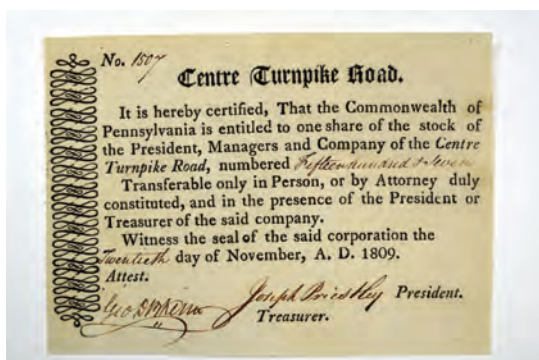 No. 1507
Centre Turnpike Road.
It is hereby certified, That the Commonwealth of
Pennsylvania is entitled to one share of the stock of
the President, Managers and Company of the Centre
Turnpike Road, numbered Fifteen hundred & Seven
Transferable only in Person, or by Attorney duly
constituted, and in the presence of the President or
Treasurer of the said company.
Witness the seal of the said corporation the
Twentieth day of November, A. D. 1809.
Attest.
Joseph Priestley President.
Geo
Treasurer.